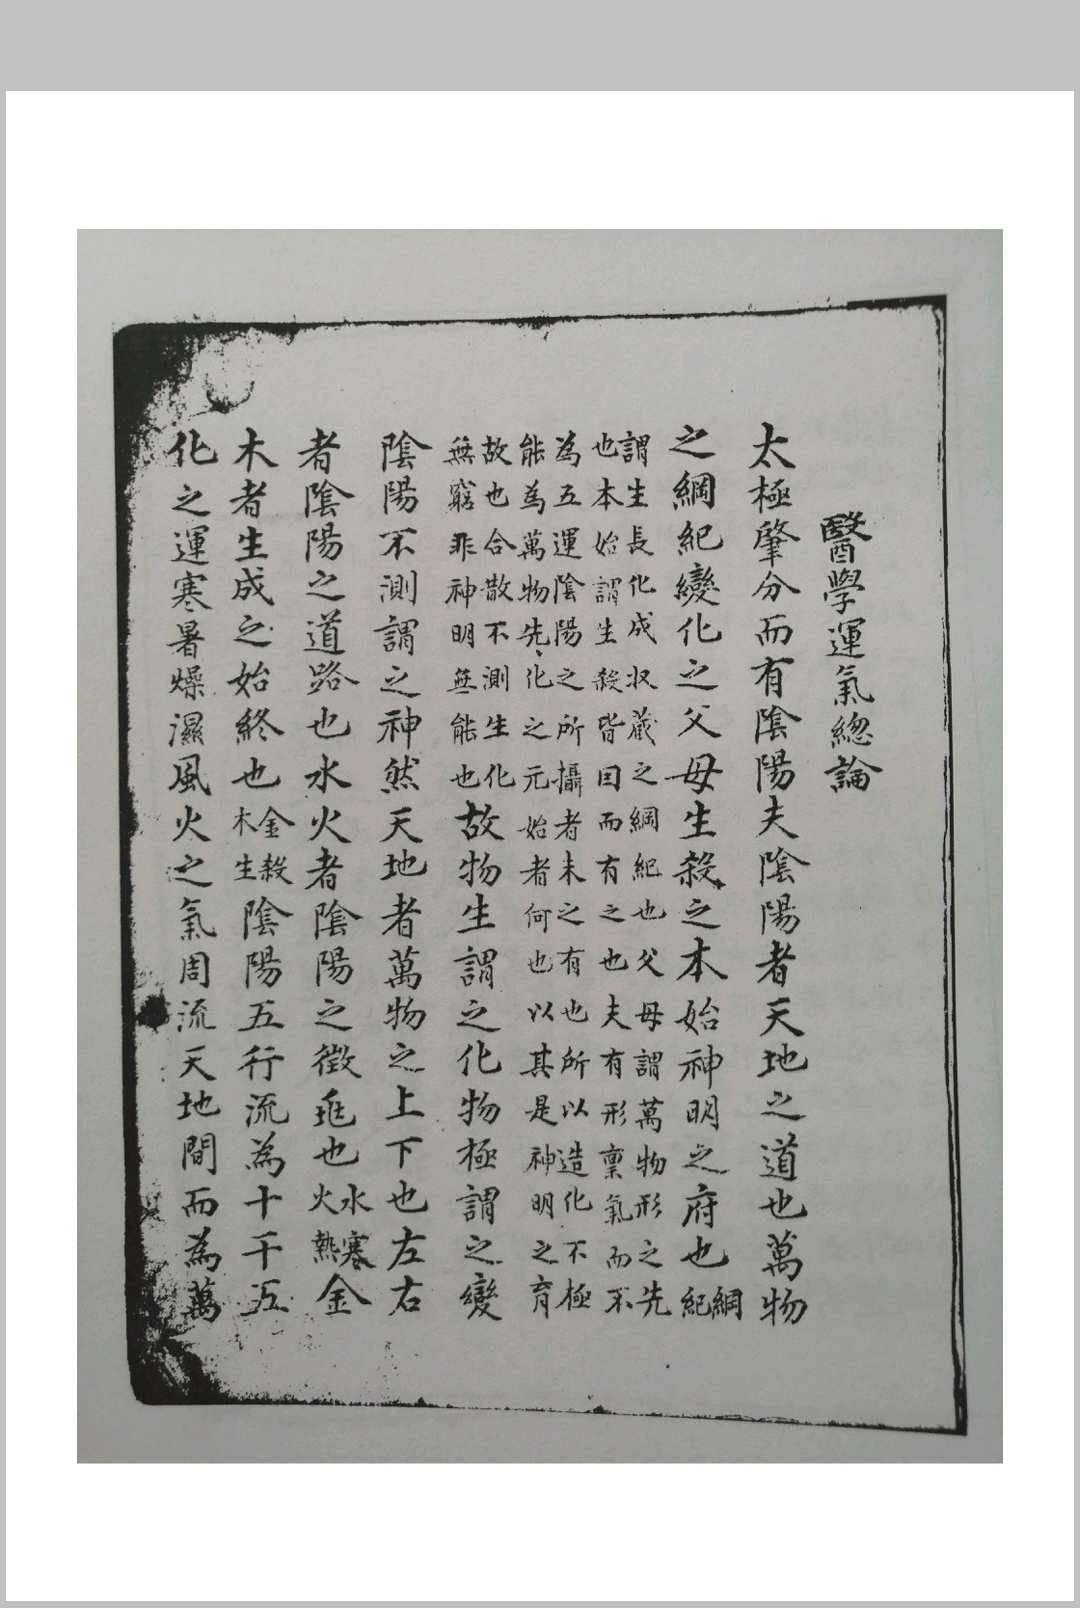 醫學運氣總論
太極肇分而有陰陽夫陰陽者天地之道也萬物
之綱紀變化之父母生殺之本始神明之府也綱紀
謂生長化成収蔵之綱紀也父母謂萬物形之先
也本始謂生殺皆因而有之也夫有形稟氣而不
為五運陰陽之所攝者未之有也所以造化不極
能為萬物先化之元始者何也以其是神明之育
故也合散不測生化
無窮非神明無能也故物生謂之化物極謂之變
陰陽不測謂之神然天地者萬物之上下也左右
者陰陽之道路也水火者陰陽之徵兆也水寒火熱金
木者生成之始終也金殺木生陰陽五行流為十干五
化之運寒暑燥濕風火之氣周流天地間而為萬